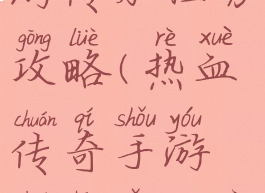 gōng lüè rè xuè
攻略(热血
chuán qí shǒu yóu
传奇手游